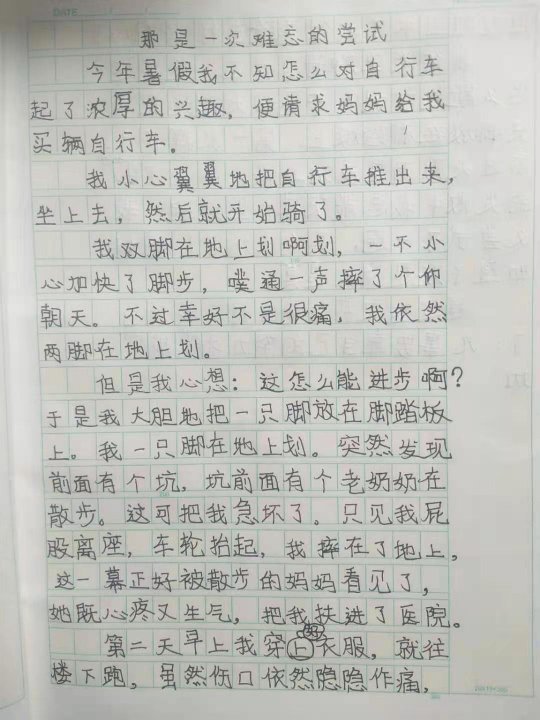 DATE
那是一次难忘的尝试
今年暑假我不知怎么对自行车
起了浓厚的兴趣，便请求妈妈给我
买辆自行车。
我小心翼翼地把自行车推出来，
坐上去，然后就开始骑了。
我双脚在地上划啊划，一不小
心加快了脚步，噗通一声摔了个仰
朝天。不过幸好不是很痛，我依然
两脚在地上划。
但是我心想：这怎么能进步啊？
于是我大胆地把一只脚放在脚踏板
上。我一只脚在地上划。突然发现
前面有个坑，坑前面有个老奶奶在
散步。这可把我急坏了。只见我屁
股离座，车轮抬起，我摔在了地上，
这一幕正好被散步的妈妈看见了，
她既心疼又生气，把我扶进了医院。
第二天早上我穿上衣服，就往
楼下跑，虽然伤口依然隐隐作痛，